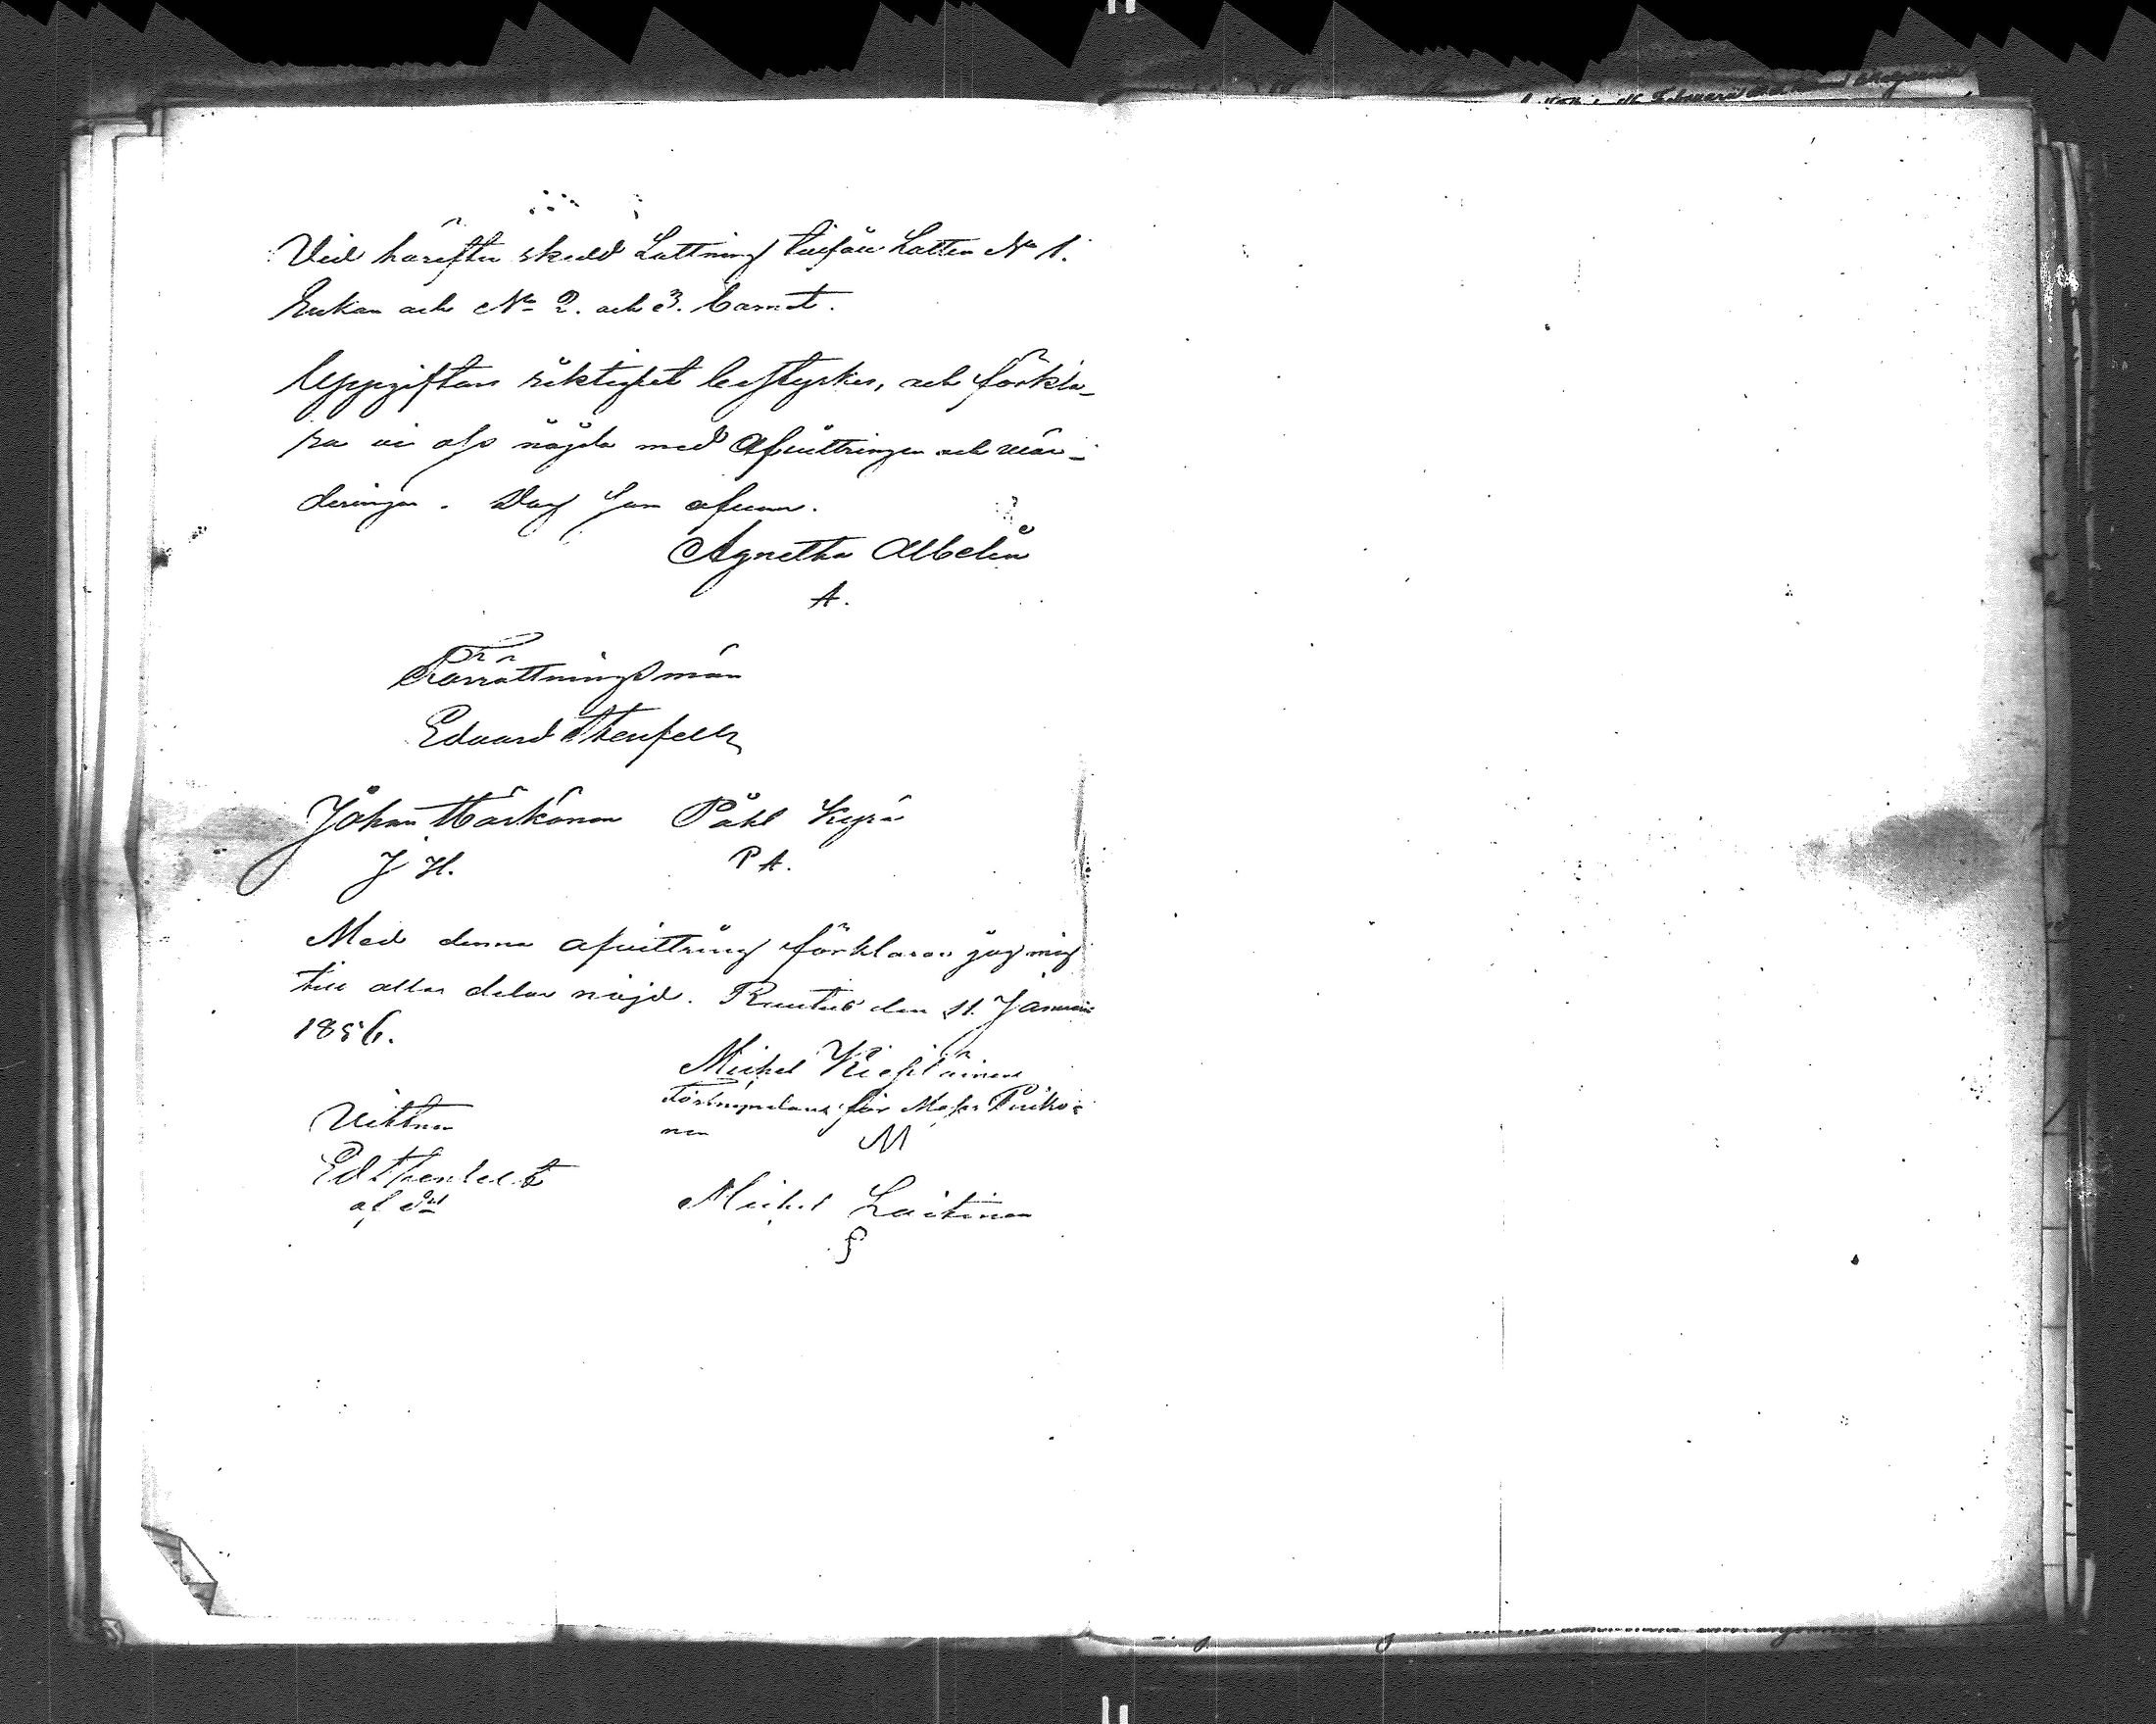 Vid härefter skedd Lottning tillföll Lotten No 1.
Enkan och No 2. och 3. barnet.
Uppgiftens riktighet bestyrkes, och förkla-
ra vi oss nöjda med Afvittringen och vär-
deringen. Dag som ofvan.
Agnetha Abelin
A.
Förrättningsmän
Eduard
Johan Härkönen Påhl Kyrö
J H. P A.
Med denna afvittring förklarar jag mig
till alla delar nöjd. Rautus den 11. Januari
1856.
Michel
Förmyndare för
nen
M
Vittna
Ed
Michel Laitinen